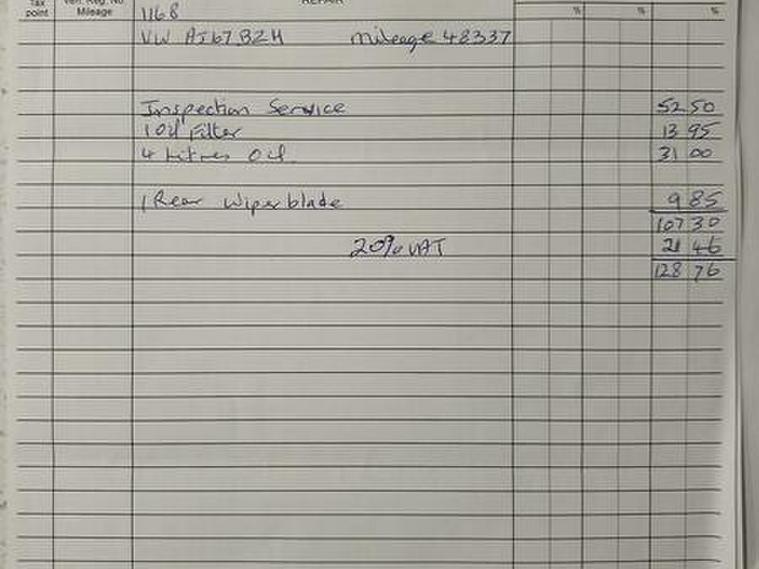 Tax Veh. Reg. No REPAIR
point Mileage 1168 % % %
VW AJ67 BZH mileage 48337
Inspection Service 52 50
1 Oil Filter 13 95
4 Litres Oil 31 00
1 Rear Wiper blade 9 85
107 30
20% VAT 21 46
128 76